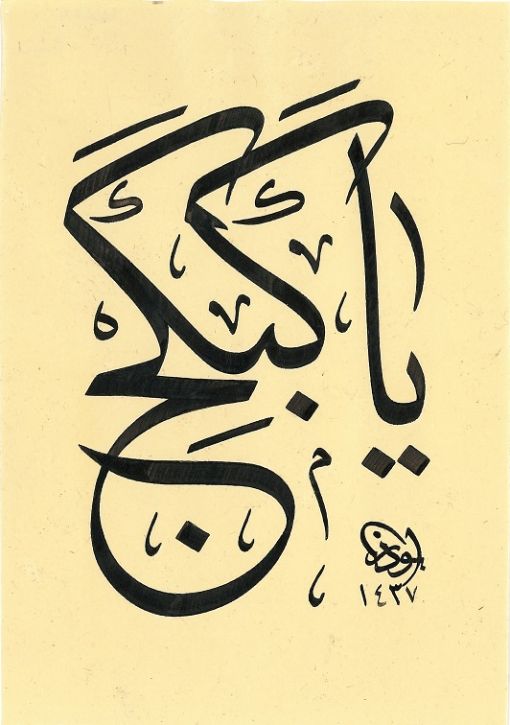 يا كبيكج
١٤٣٧